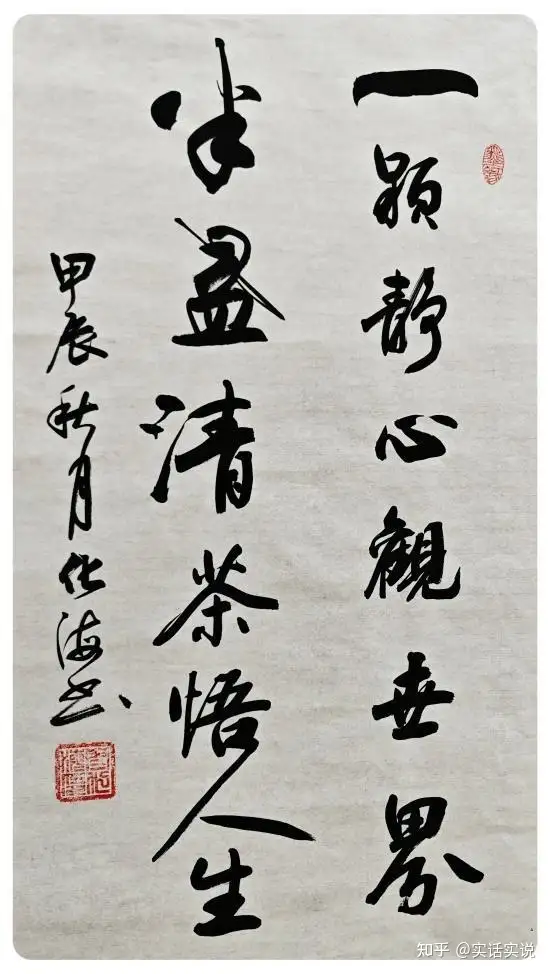 一颗静心觀世界
半盏清茶悟人生
甲辰秋月化海书
知乎 @实话实说